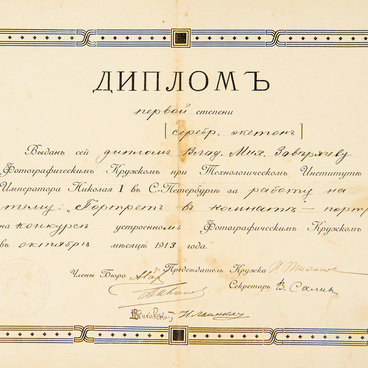 ДИПЛОМЪ
первой степени
[серебр. жетонъ]
Выданъ сей дипломъ Влад. Мих.
Фотографическимъ Кружкомъ при Технологическомъ Институтѣ
Императора Николая I въ С-Петербургѣ за работу на
тему: „Портретъ въ комнатѣ — портр
на конкурсѣ устроенномъ Фотографическимъ Кружкомъ
въ октябрѣ мѣсяцѣ 1913 года.
Члены Бюро Предсѣдатель Кружка
Секретарь В.